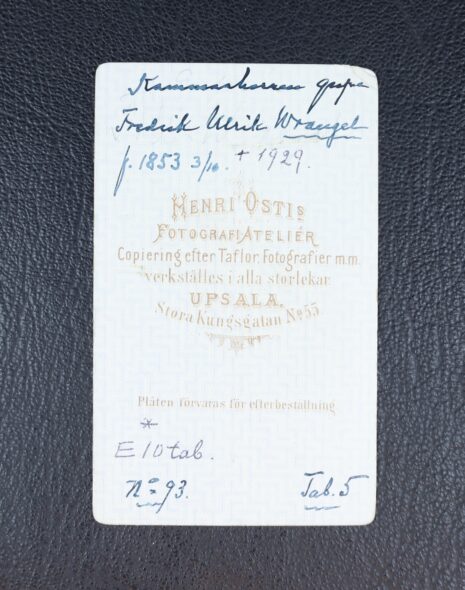 Kammarherren grefve
Fredrik Ulrik Wrangel
f. 1853 3/10. + 1929.
HENRI OSTIS
FOTOGRAFIATELIÉR
Copiering efter Taflor, Fotografier m.m.
verkställes i alla storlekar.
UPSALA.
Stora Kungsgatan No 55
Plåten förvaras för efterbeställning
*
E 10 tab.
No 93.
Tab. 5